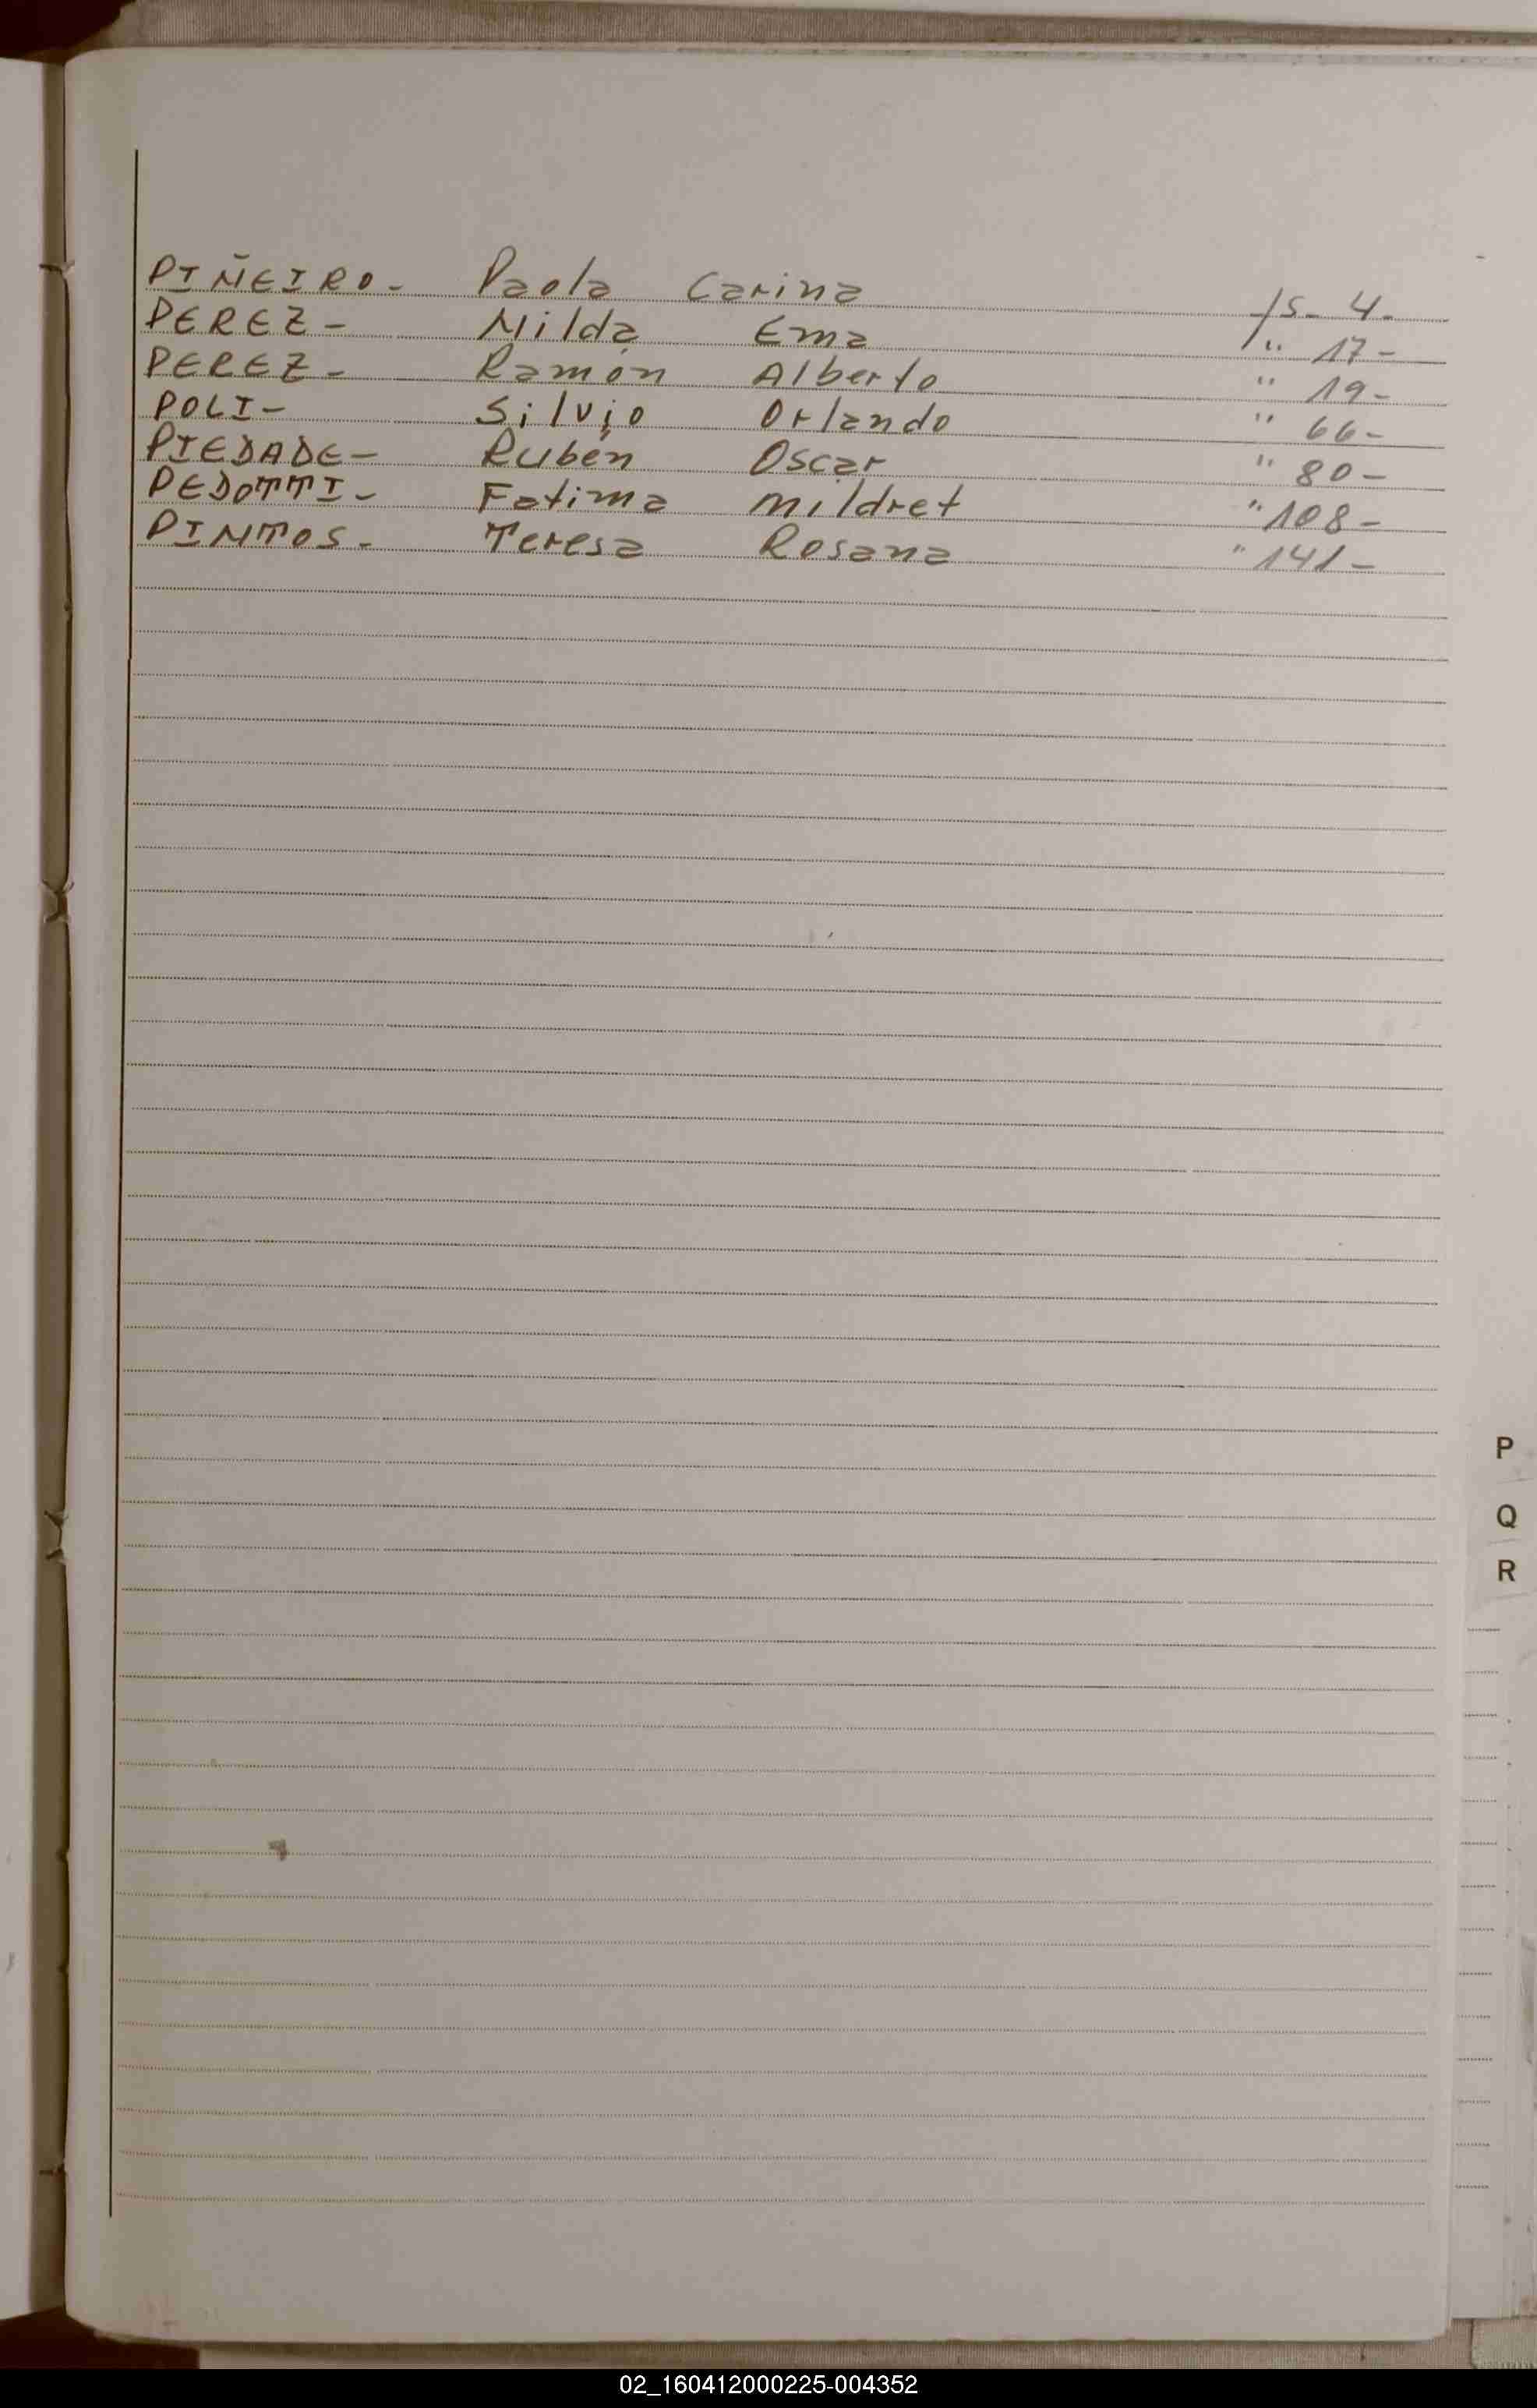 PIÑEIRO- Paola Carina fs- 4-
PEREZ- Nilda Ema " 17-
PEREZ- Ramón Alberto " 19-
POLI- Silvio Orlando " 66-
PIEDADE- Ruben Oscar " 80-
PEDOTTI- Fatima Mildret " 108-
PINTOS- Teresa Rosana " 141-
P
Q
R
02_160412000225-004352